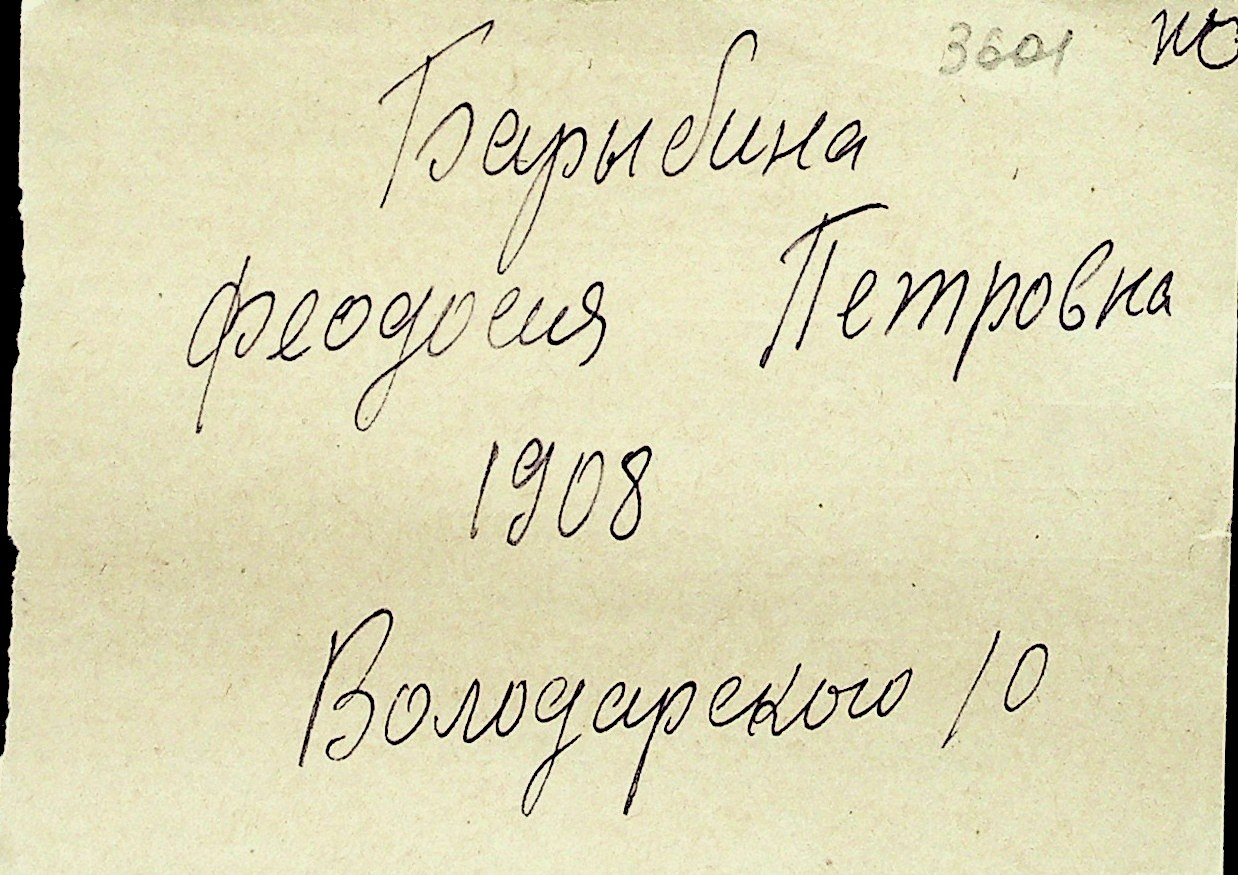 3601
Барыбина
Феодосия Петровна
1908
Володарского 10